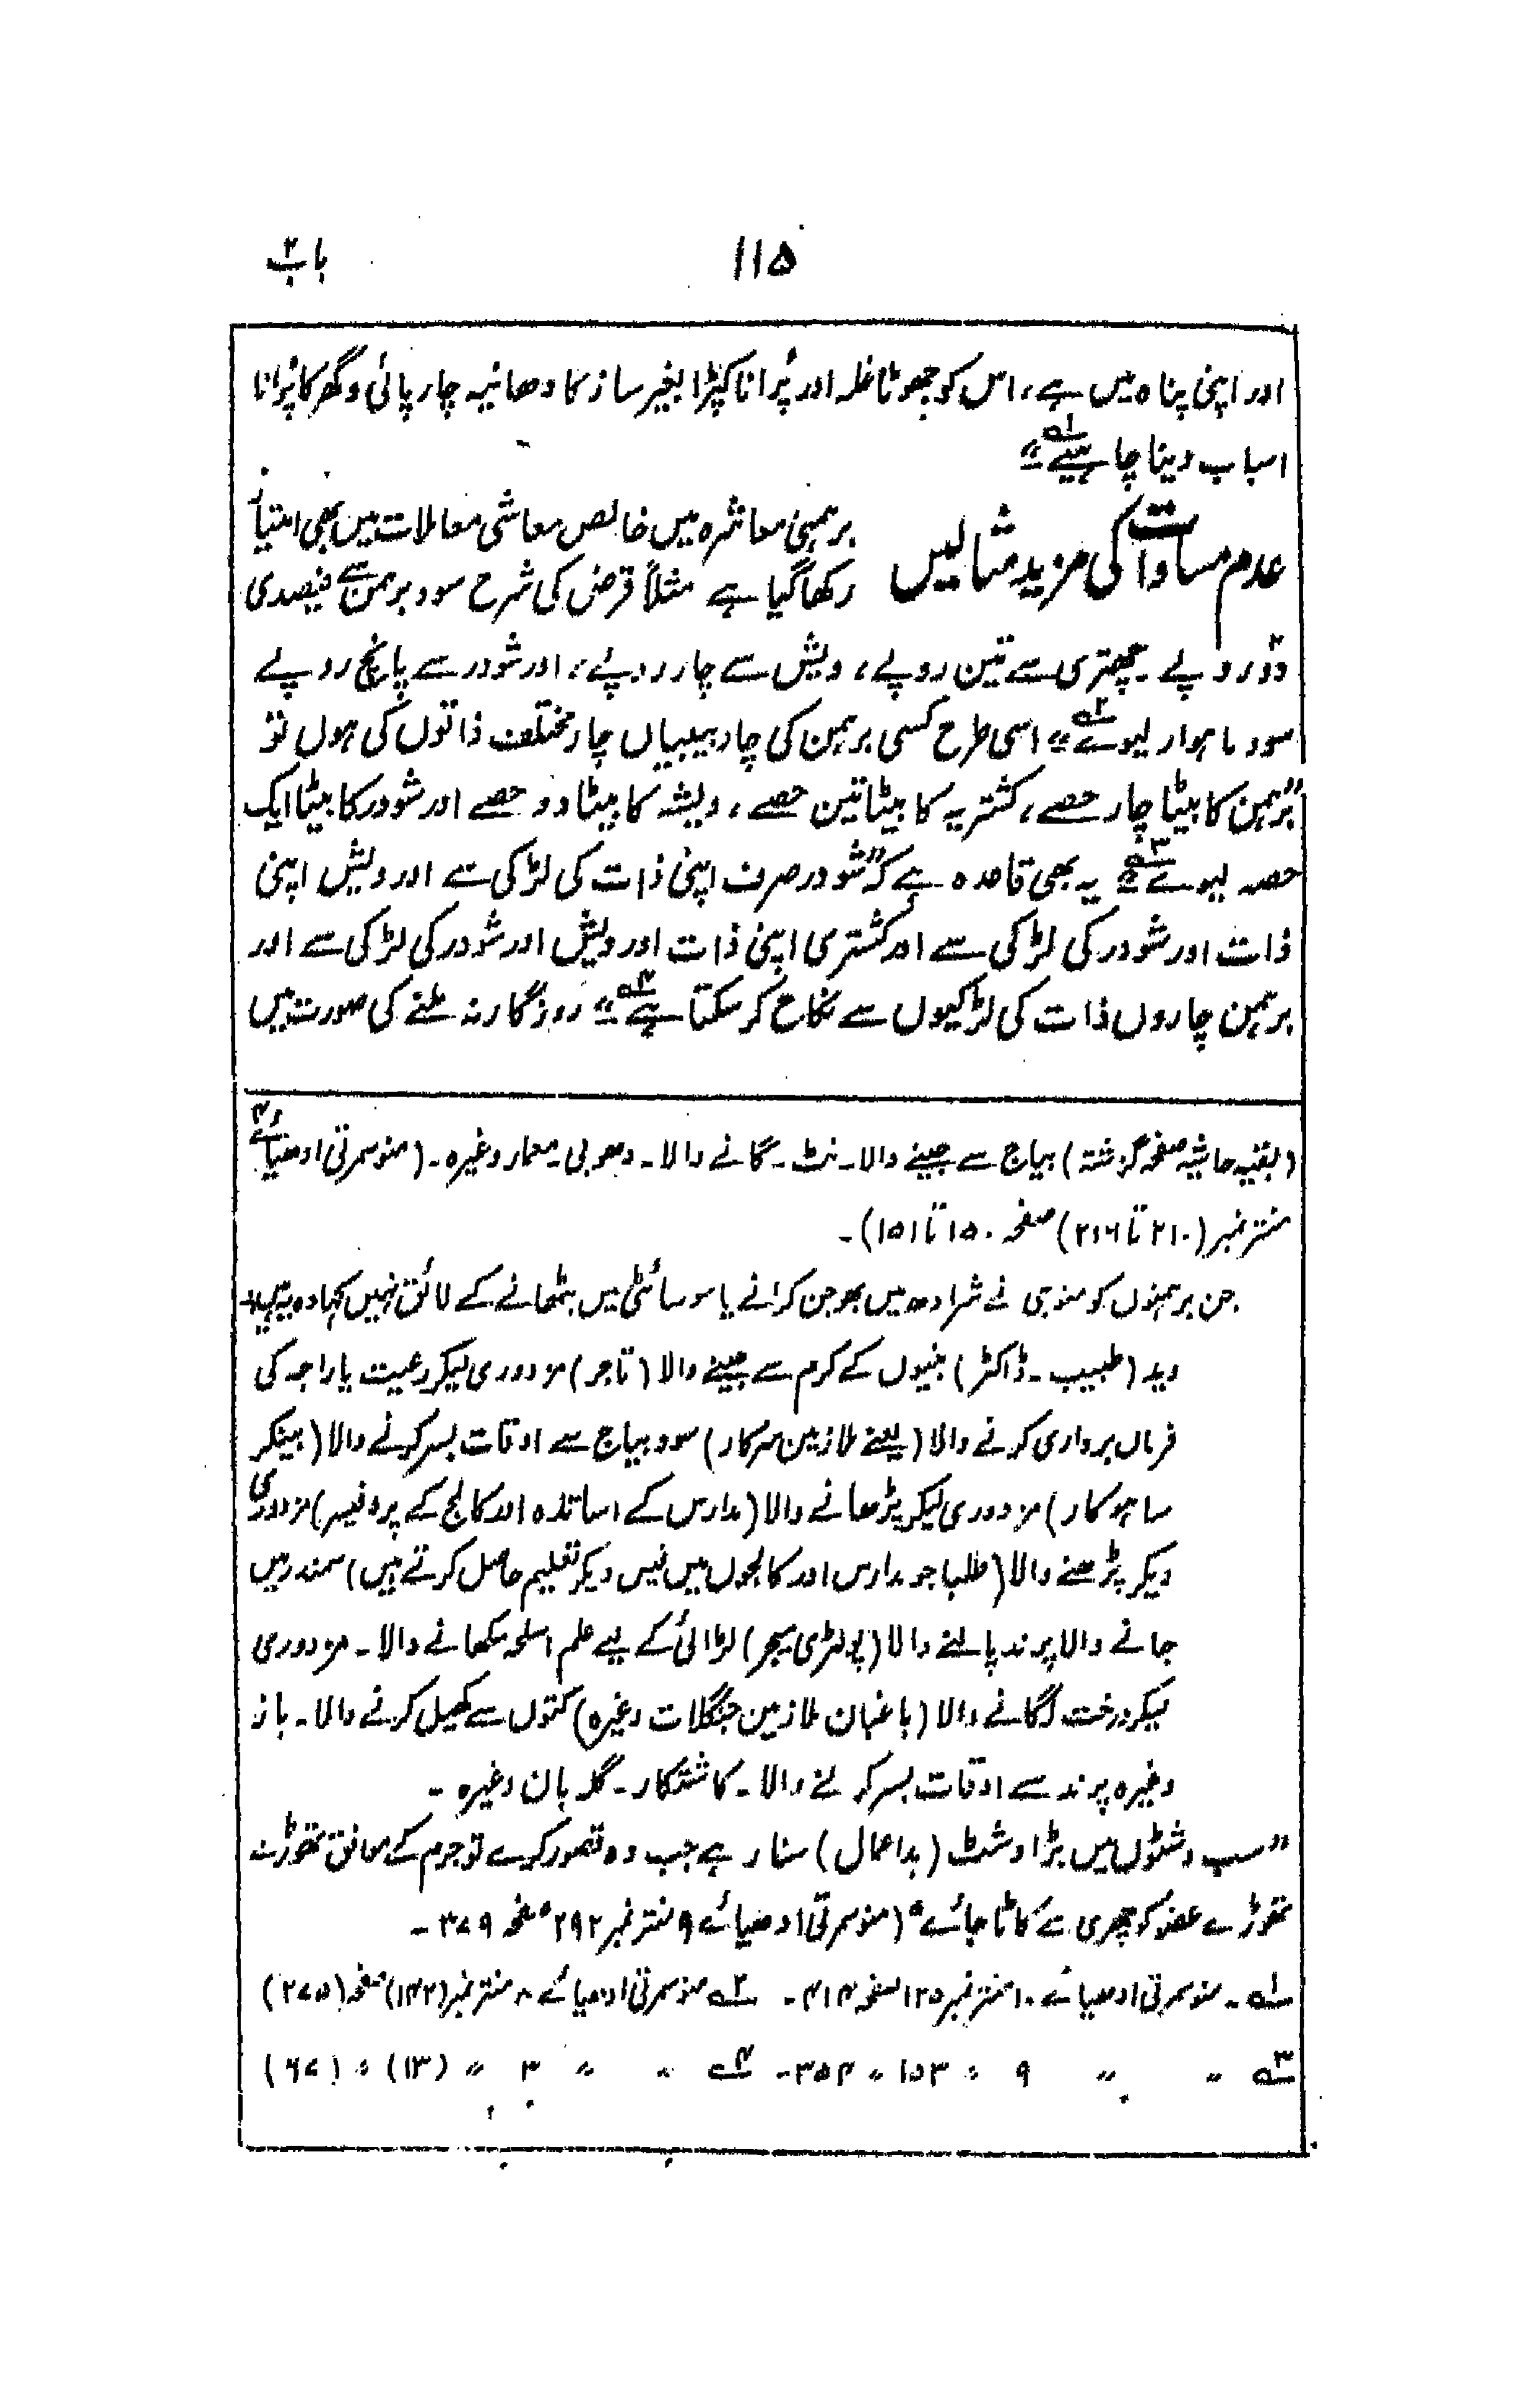 باب ۲
۱۱۵
اور اپنی پناہ میں ہے، اس کو جھوٹا غلہ اور پُرانا کپڑا بغیر ساز کا دھانیہ چارپائی و گھر کا پُرانا
اسباب دینا چاہیئے ۱؎"
عدم مساوات کی مزید مثالیں
برہمنی معاشرہ میں خالص معاشی معاملات میں بھی امتیاز
رکھا گیا ہے مثلاً قرض کی شرح سود برہمن سے فیصدی
دو ۲ روپے ۔ چھتری سے تین روپے، ویش سے چار روپے، اور شودر سے پانچ روپے
سود ماہوار لیوے ۲؎" اسی طرح کسی برہمن کی چار بیبیاں چار مختلف ذاتوں کی ہوں تو
"برہمن کا بیٹا چار حصے، کشتریہ کا بیٹا تین حصے، ویشہ کا بیٹا دو حصے اور شودر کا بیٹا ایک
حصہ لیوے ۳؎" یہ بھی قاعدہ ہے کہ "شودر صرف اپنی ذات کی لڑکی سے اور ویش اپنی
ذات اور شودر کی لڑکی سے اور کشتری اپنی ذات اور ویش اور شودر کی لڑکی سے اور
برہمن چاروں ذات کی لڑکیوں سے نکاح کر سکتا ہے ۴؎" روزگار نہ ملنے کی صورت میں
(بقیہ حاشیہ صفحہ گزشتہ) بیاج سے جینے والا ۔ نٹ ۔ گانے والا ۔ دھوبی ۔ معمار وغیرہ ۔ (منوسمرتی ادھیائے ۴
منتر نمبر (۲۱۰ تا ۲۱۶) صفحہ ۱۵۰ تا ۱۵۱) ۔
جن برہمنوں کو منوجی نے شرادھ میں بھوجن کرانے یا سوسائٹی میں بٹھانے کے لائق نہیں کہا وہ یہ ہیں:۔
وید (طبیب ۔ ڈاکٹر) بنیوں کے کرم سے جینے والا (تاجر) مزدوری لیکر رعیت یا راجہ کی
فرماں برداری کرنے والا (یعنے ملازمین سرکار) سود بیاج سے اوقات بسر کرنے والا (بینکر
ساہوکار) مزدوری لیکر پڑھانے والا (مدارس کے اساتذہ اور کالج کے پروفیسر) مزدوری
دیکر پڑھنے والا (طلبا جو مدارس اور کالجوں میں فیس دیکر تعلیم حاصل کرتے ہیں) سمندر میں
جانے والا پرند پالنے والا (پولٹری بیجر) لڑائی کے لیے علم اسلحہ سکھانے والا ۔ مزدوری
لیکر درخت لگانے والا (باغبان ملازمین جنگلات وغیرہ) کتوں سے کھیل کرنے والا ۔ باز
وغیرہ پرند سے اوقات بسر کرنے والا ۔ کاشتکار ۔ گلہ بان وغیرہ ۔
"سب دشٹوں میں بڑا دشٹ (بداعمال) سنار ہے جب وہ قصور کرے تو جرم کے موافق تھوڑے
تھوڑے عضو کو چھری سے کاٹا جائے" (منوسمرتی ادھیائے ۹ منتر نمبر ۲۹۲ صفحہ ۳۷۹ ۔
۱؎ ۔ منوسمرتی ادھیائے ۱۰ منتر نمبر ۱۲۵ صفحہ ۴۱۴ ۔ ۲؎ منوسمرتی ادھیائے ۸ منتر نمبر (۱۴۲) صفحہ (۲۷۵)
۳؎ " " ۹ " ۱۵۳ " ۳۵۴ ۔ ۴؎ " " ۳ " (۱۳) " (۶۷)